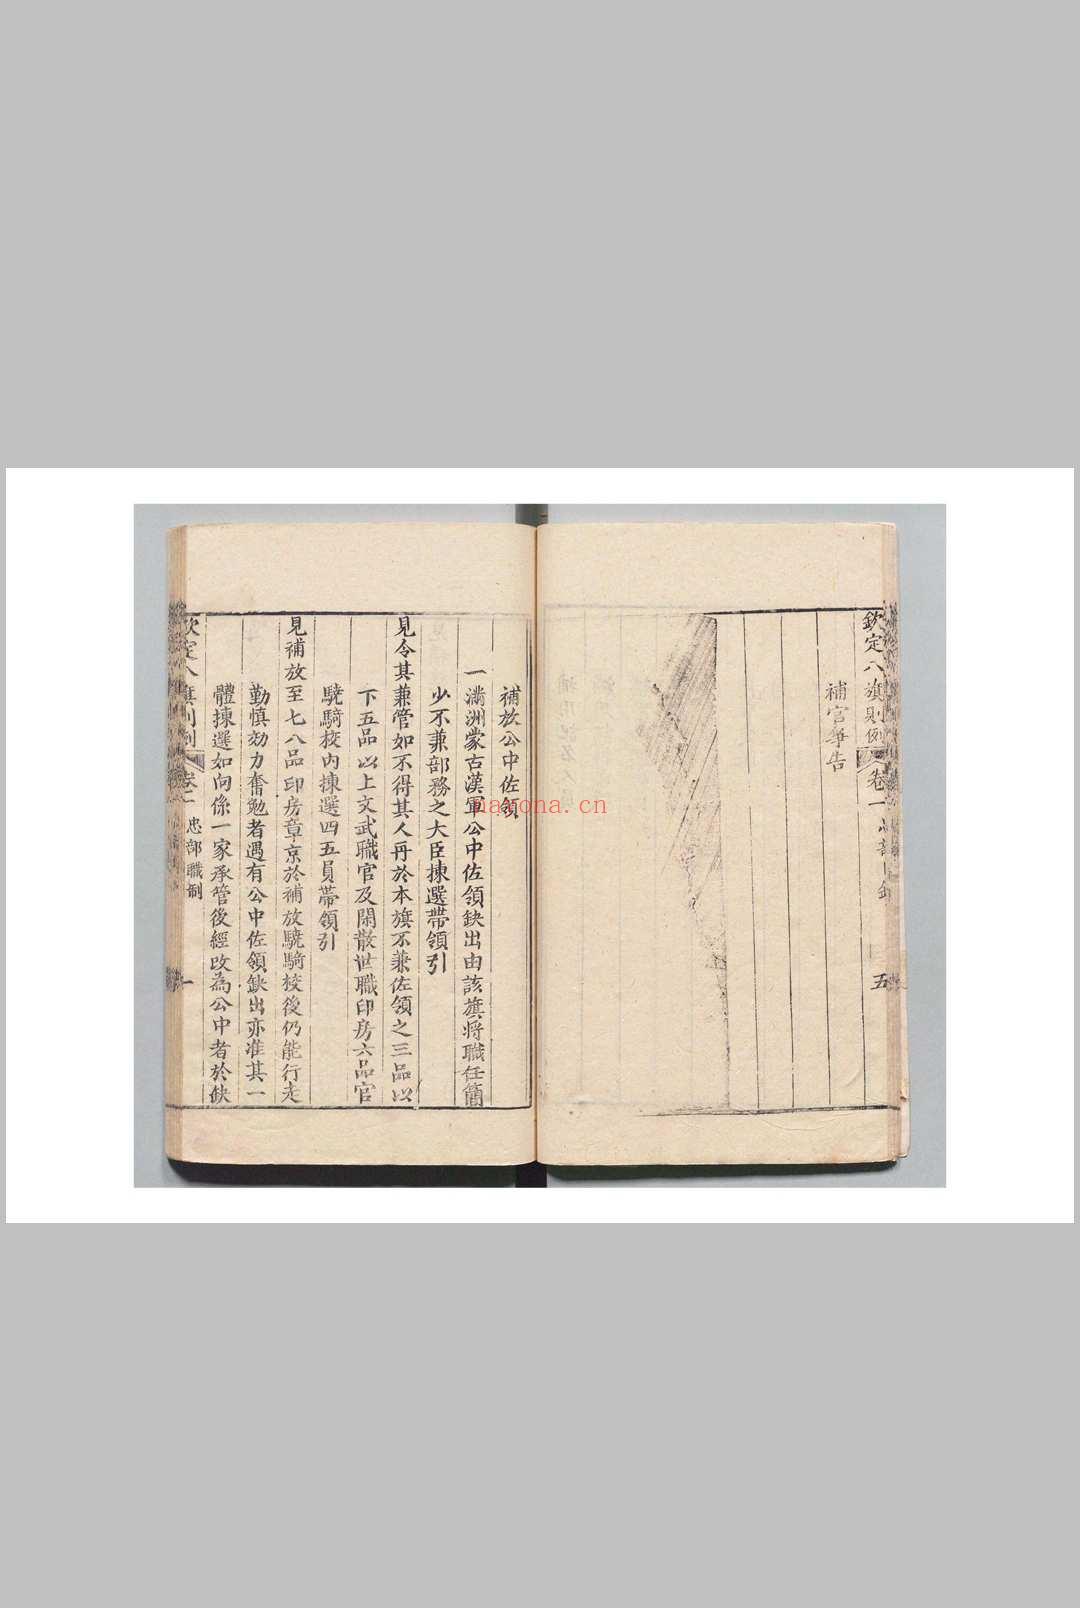 欽定八旗則例 卷一
五
補官事告
補放公中佐領
一滿洲蒙古漢軍公中佐領缺出由該旗將職任簡
少不兼部務之大臣揀選帶領引
見令其兼管如不得其人再於本旗不兼佐領之三品以
下五品以上文武職官及閑散世職印房六品官
驍騎校內揀選四五員帶領引
見補放至七八品印房章京於補放驍騎校後仍能行走
勤慎効力奮勉者遇有公中佐領缺出亦准其一
體揀選如向係一家承管後經改為公中者於缺
欽定八旗則例 卷二 忠部職制 一
nayona.cn